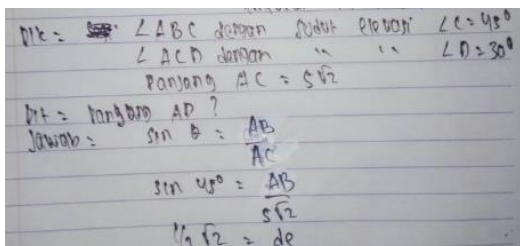 Dik = ∠ABC dengan sudut elevasi ∠C = 45°
∠ACD dengan " " ∠D = 30°
Panjang AC = 5√2
Dit = Panjang AD ?
Jawab = sin θ = AB/AC
sin 45° = AB/5√2
1/2 √2 =